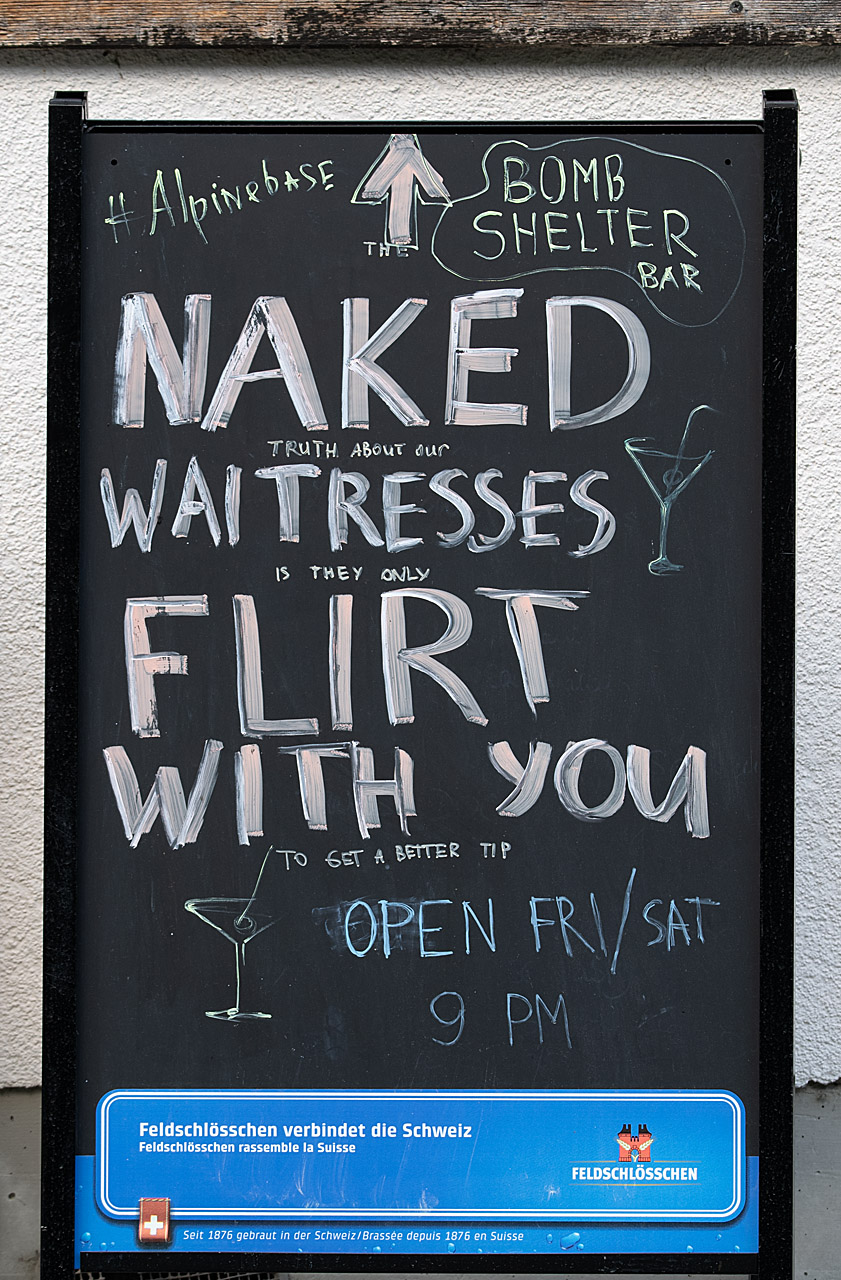 #Alpinebase
BOMB
SHELTER
BAR
THE
NAKED
TRUTH ABOUT our
WAITRESSES
IS THEY ONLY
FLIRT
WITH YOU
TO GET A BETTER TIP
OPEN FRI/SAT
9 PM
Feldschlösschen verbindet die Schweiz
Feldschlösschen rassemble la Suisse
FELDSCHLÖSSCHEN
Seit 1876 gebraut in der Schweiz/Brassée depuis 1876 en Suisse